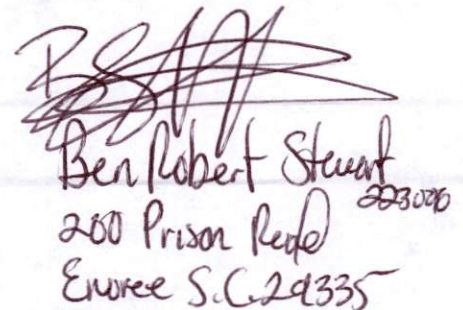 Ben Robert Stewart
223006
200 Prison Road
Enoree S.C. 29335